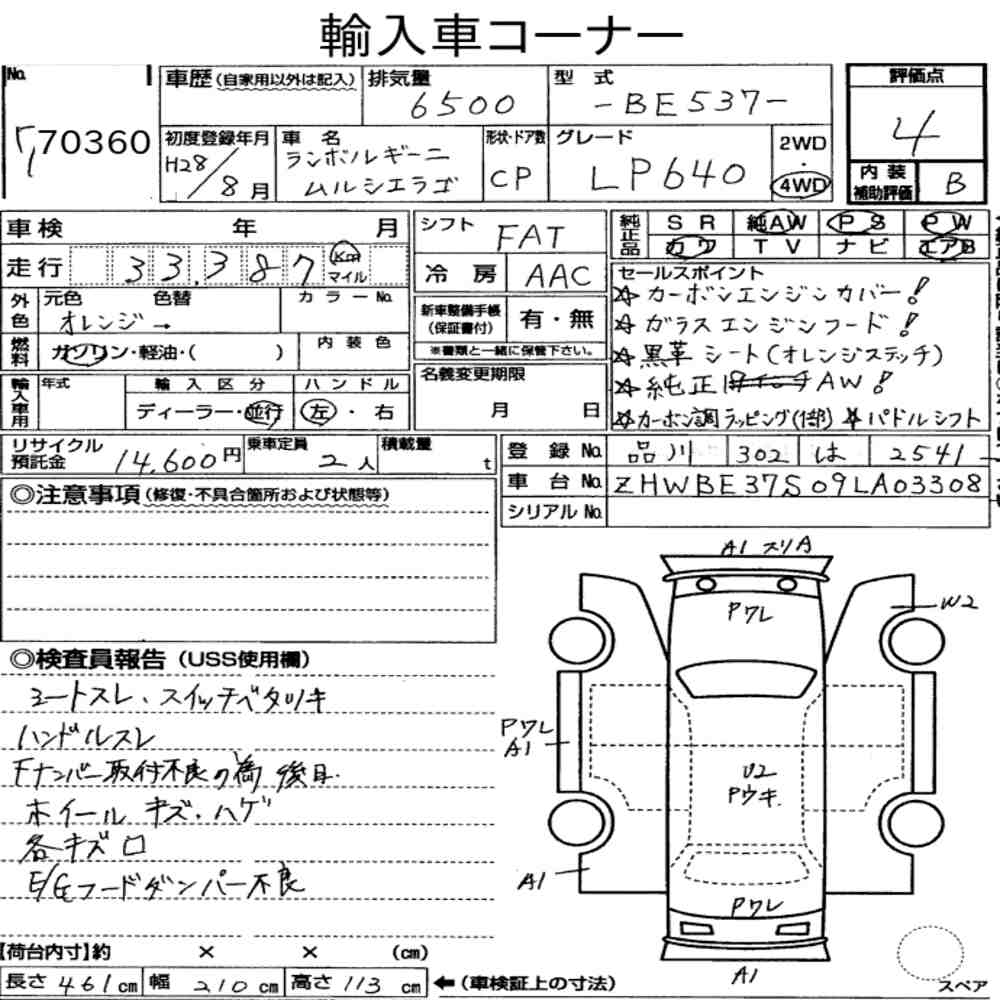 輸入車コーナー
No.
70360
車歴(自家用以外は記入)
排気量
6500
型式
-BE537-
評価点
4
初度登録年月
H28/8月
車名
ランボルギーニ
ムルシエラゴ
形状・ドア数
CP
グレード
LP640
2WD
・
4WD
内装
補助評価
B
車検 年 月
走行 33,387 Km マイル
シフト
FAT
冷房 AAC
純正品
SR 純AW PS PW
カワ TV ナビ エアB
セールスポイント
☆カーボンエンジンカバー!
☆ガラスエンジンフード!
☆黒革シート(オレンジステッチ)
☆純正 AW!
☆カーボン調ラッピング(1部) ☆パドルシフト
外色
元色 色替 カラーNo.
オレンジ→
燃料
ガソリン・軽油・( )
内装色
新車整備手帳
(保証書付)
有・無
※書類と一緒に保管下さい。
名義変更期限
月 日
輸入車用
年式
輸入区分
ディーラー・並行
ハンドル
左・右
リサイクル
預託金 14,600円
乗車定員
2人
積載量
t
登録No. 品川 302 は 2541
車台No. ZHWBE37S09LA03308
シリアルNo.
◎注意事項(修復・不具合箇所および状態等)
◎検査員報告(USS使用欄)
シートスレ、スイッチベタツキ
ハンドルスレ
Fナンバー取付不良の為後日
ホイールキズ、ハゲ
各キズ
E/Gフードダンパー不良
A1 スリA
Pワレ
W2
Pワレ
A1
U2
Pウキ
A1
Pワレ
A1
スペア
【荷台内寸】約 × × (cm)
長さ 461cm 幅 210cm 高さ 113cm ←(車検証上の寸法)